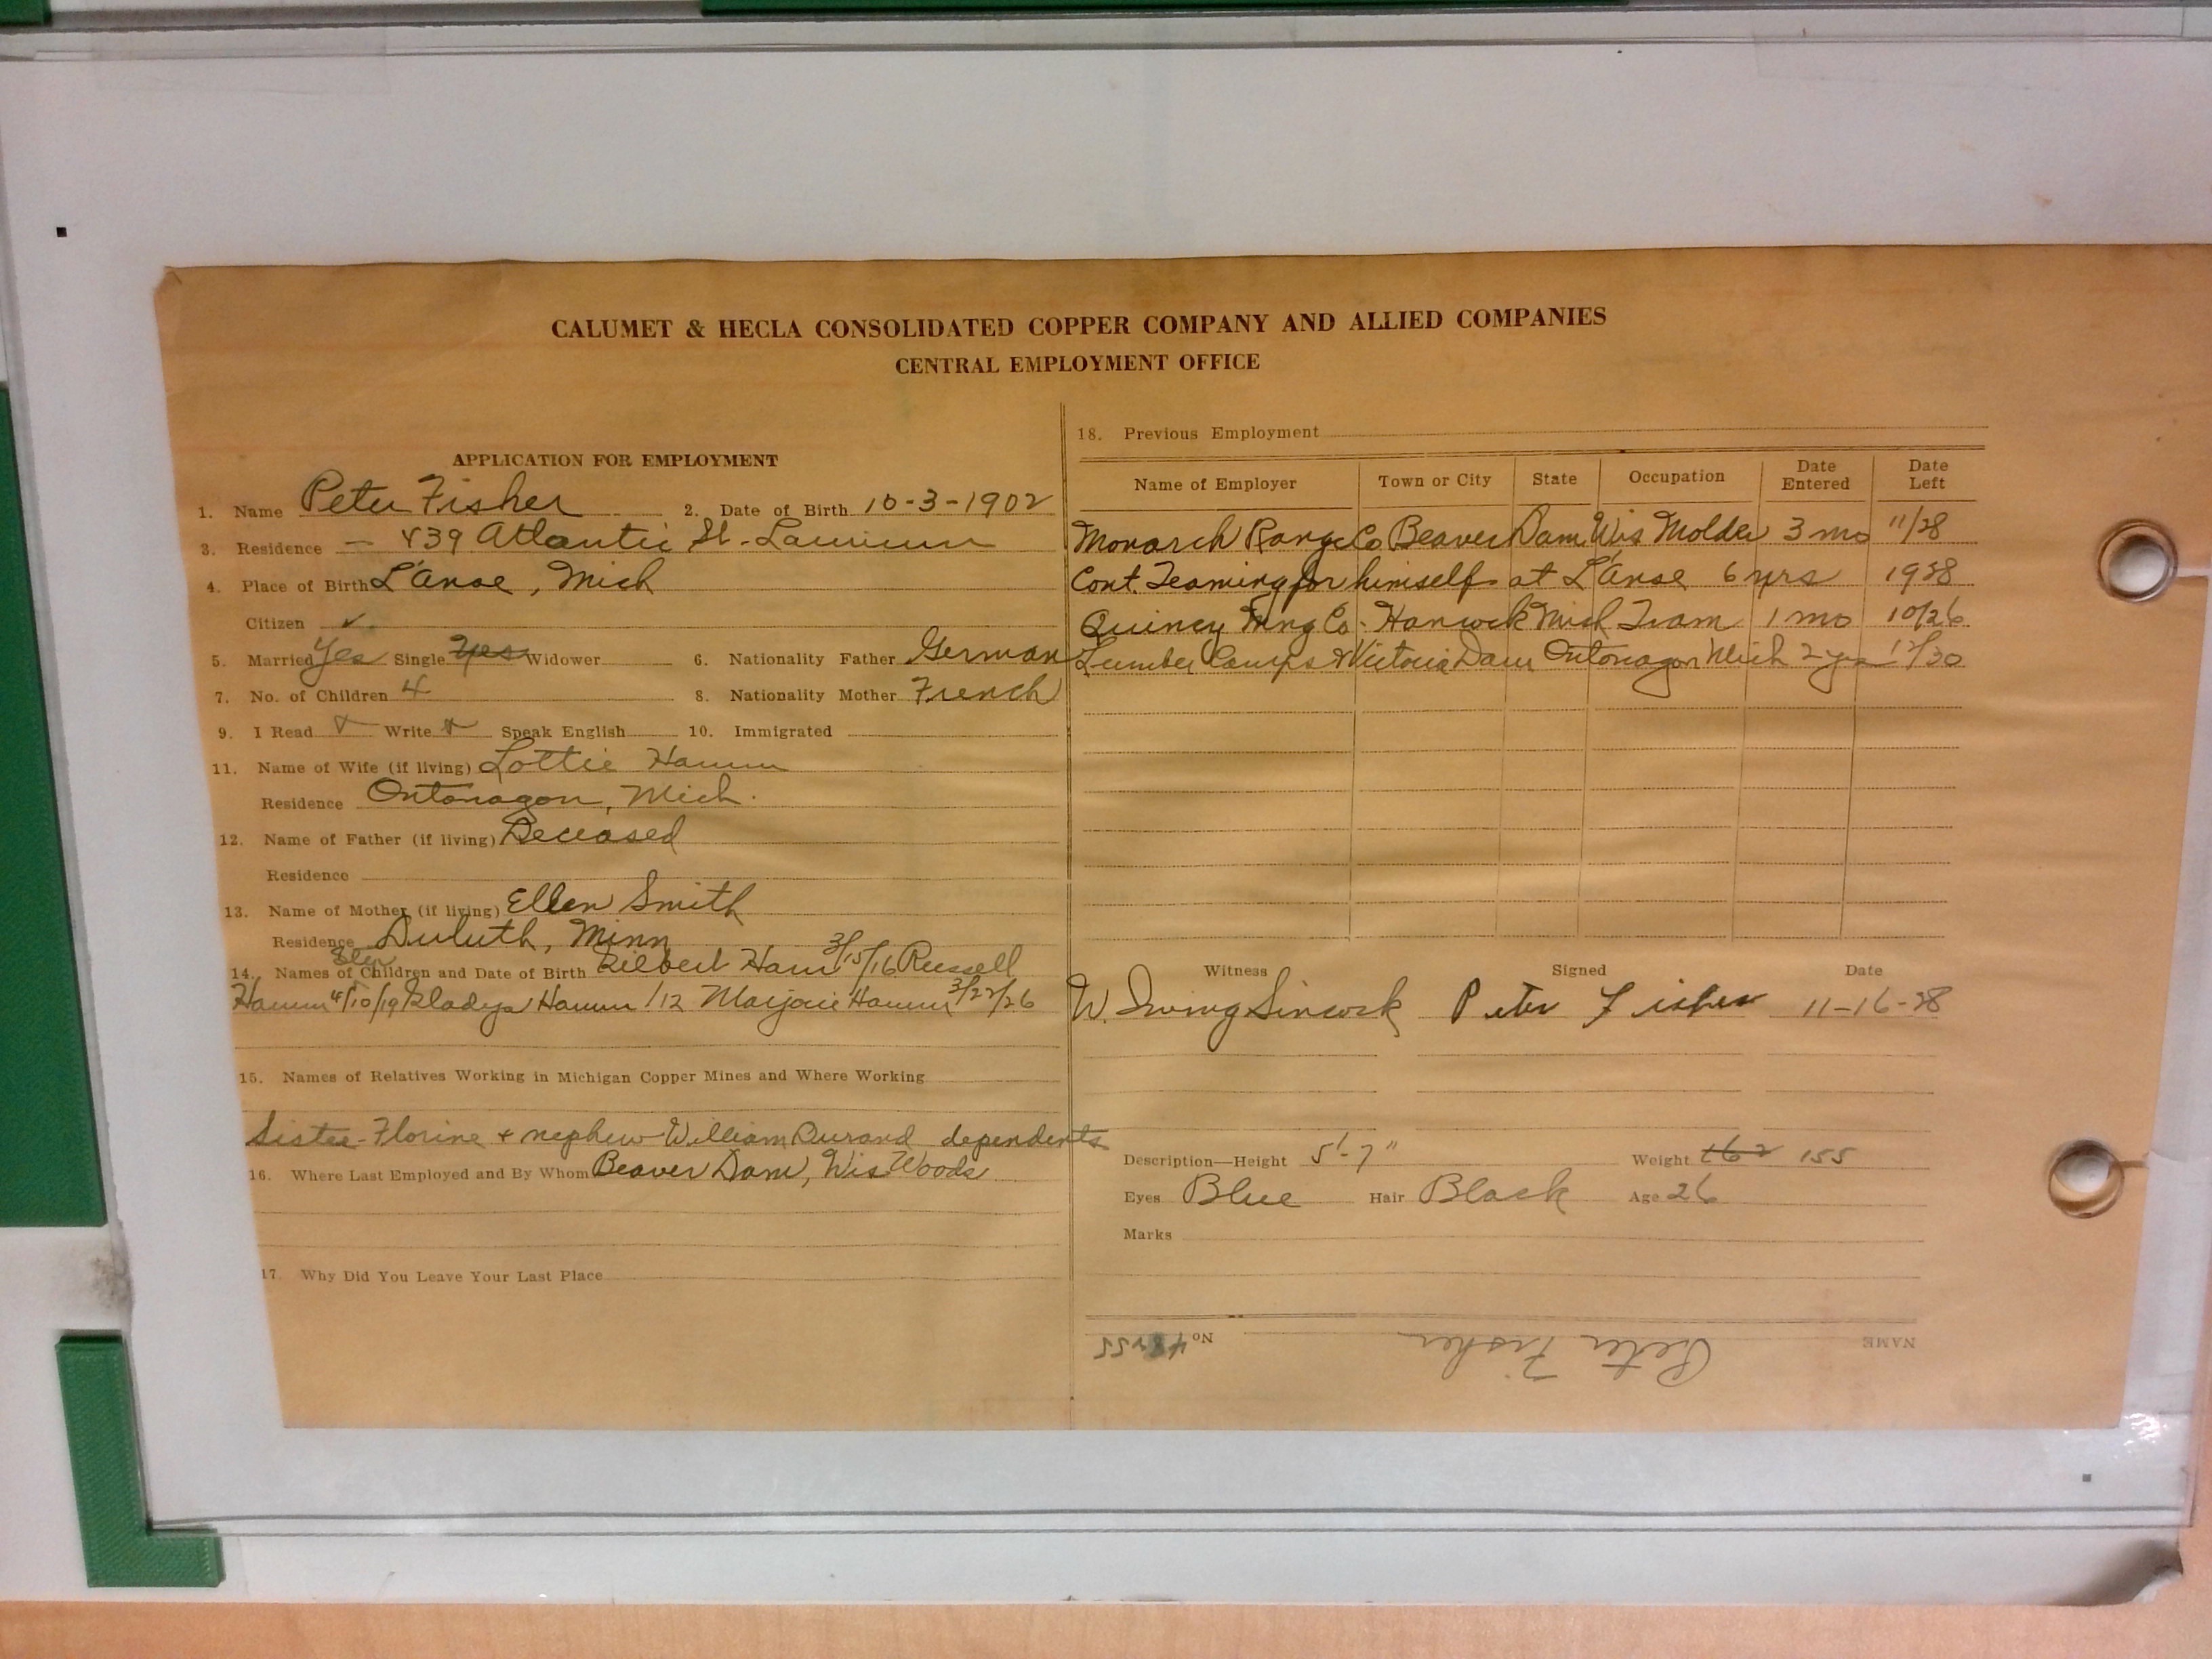 CALUMET & HECLA CONSOLIDATED COPPER COMPANY AND ALLIED COMPANIES
CENTRAL EMPLOYMENT OFFICE
APPLICATION FOR EMPLOYMENT
1. Name Peter Fisher 2. Date of Birth 10-3-1902
3. Residence - 439 Atlantic St. Laurium
4. Place of Birth L'Anse, Mich
Citizen ✓
5. Married Yes Single Yes Widower 6. Nationality Father German
7. No. of Children 4 8. Nationality Mother French
9. I Read Write Speak English 10. Immigrated
11. Name of Wife (if living) Lottie Hamm
Residence Ontonagon, Mich.
12. Name of Father (if living) Deceased
Residence
13. Name of Mother (if living) Ellen Smith
Residence Duluth, Minn
Step
14. Names of Children and Date of Birth Hamm 3/15/16 Russell
Hamm 4/10/19 Gladys Hamm /12 Marjorie Hamm 3/27/26
15. Names of Relatives Working in Michigan Copper Mines and Where Working
Sister-Florine & nephew-William Durand dependents
16. Where Last Employed and By Whom Beaver Dam, Wis Woods
17. Why Did You Leave Your Last Place
18. Previous Employment
Name of Employer Town or City State Occupation Date Entered Date Left
Monarch Range Co Beaver Dam Wis Molder 3 mo 11/28
Cont. Teaming for himself at L'Anse 6 yrs 1928
Quincy Mng Co. Hancock Mich Tram 1 mo 10/26
Lumber Camps & Victoria Dam Ontonagon Mich 2 yrs 12/30
Witness Signed Date
W. Irving Sincock Peter Fisher 11-16-28
Description—Height 5'-7" Weight 162 155
Eyes Blue Hair Black Age 26
Marks
NAME Peter Fisher No